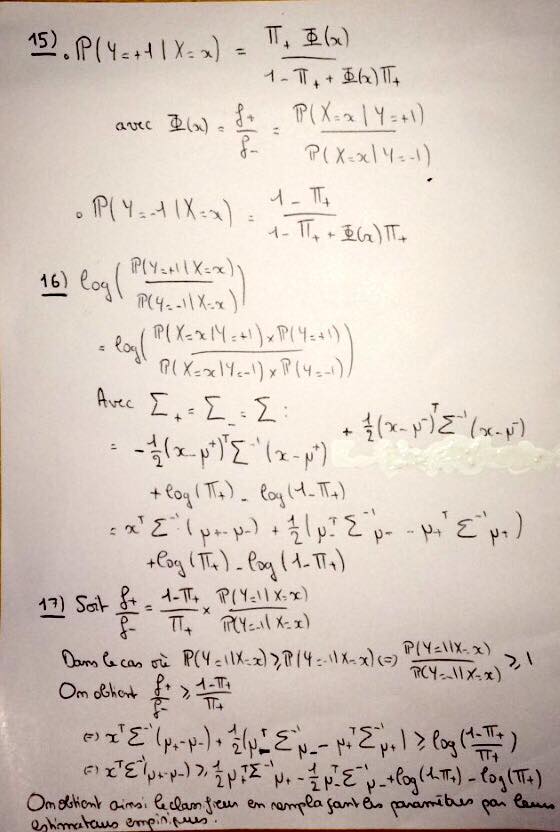 15) • P(Y=+1 | X=x) = Π₊ Φ(x) / (1 - Π₊ + Φ(x)Π₊)
avec Φ(x) = f₊/f₋ = P(X=x | Y=+1) / P(X=x | Y=-1)
• P(Y=-1 | X=x) = (1 - Π₊) / (1 - Π₊ + Φ(x)Π₊)
16) log( P(Y=+1 | X=x) / P(Y=-1 | X=x) )
= log( P(X=x | Y=+1) × P(Y=+1) / P(X=x | Y=-1) × P(Y=-1) )
Avec Σ₊ = Σ₋ = Σ :
= -1/2 (x-μ⁺)ᵀ Σ⁻¹ (x-μ⁺) + 1/2 (x-μ⁻)ᵀ Σ⁻¹ (x-μ⁻)
+ log(Π₊) - log(1-Π₊)
= xᵀ Σ⁻¹ (μ₊-μ₋) + 1/2 (μ₋ᵀ Σ⁻¹ μ₋ - μ₊ᵀ Σ⁻¹ μ₊)
+ log(Π₊) - log(1-Π₊)
17) Soit f₊/f₋ = (1-Π₊)/Π₊ × P(Y=1 | X=x) / P(Y=-1 | X=x)
Dans le cas où P(Y=1 | X=x) ≥ P(Y=-1 | X=x) (=) P(Y=1 | X=x) / P(Y=-1 | X=x) ≥ 1
On obtient f₊/f₋ ≥ (1-Π₊)/Π₊
(=) xᵀ Σ⁻¹ (μ₊-μ₋) + 1/2 (μ₋ᵀ Σ⁻¹ μ₋ - μ₊ᵀ Σ⁻¹ μ₊) ≥ log( (1-Π₊)/Π₊ )
(=) xᵀ Σ⁻¹ (μ₊-μ₋) ≥ 1/2 μ₊ᵀ Σ⁻¹ μ₊ - 1/2 μ₋ᵀ Σ⁻¹ μ₋ + log(1-Π₊) - log(Π₊)
On obtient ainsi le classifieur en remplaçant les paramètres par leurs
estimateurs empiriques.